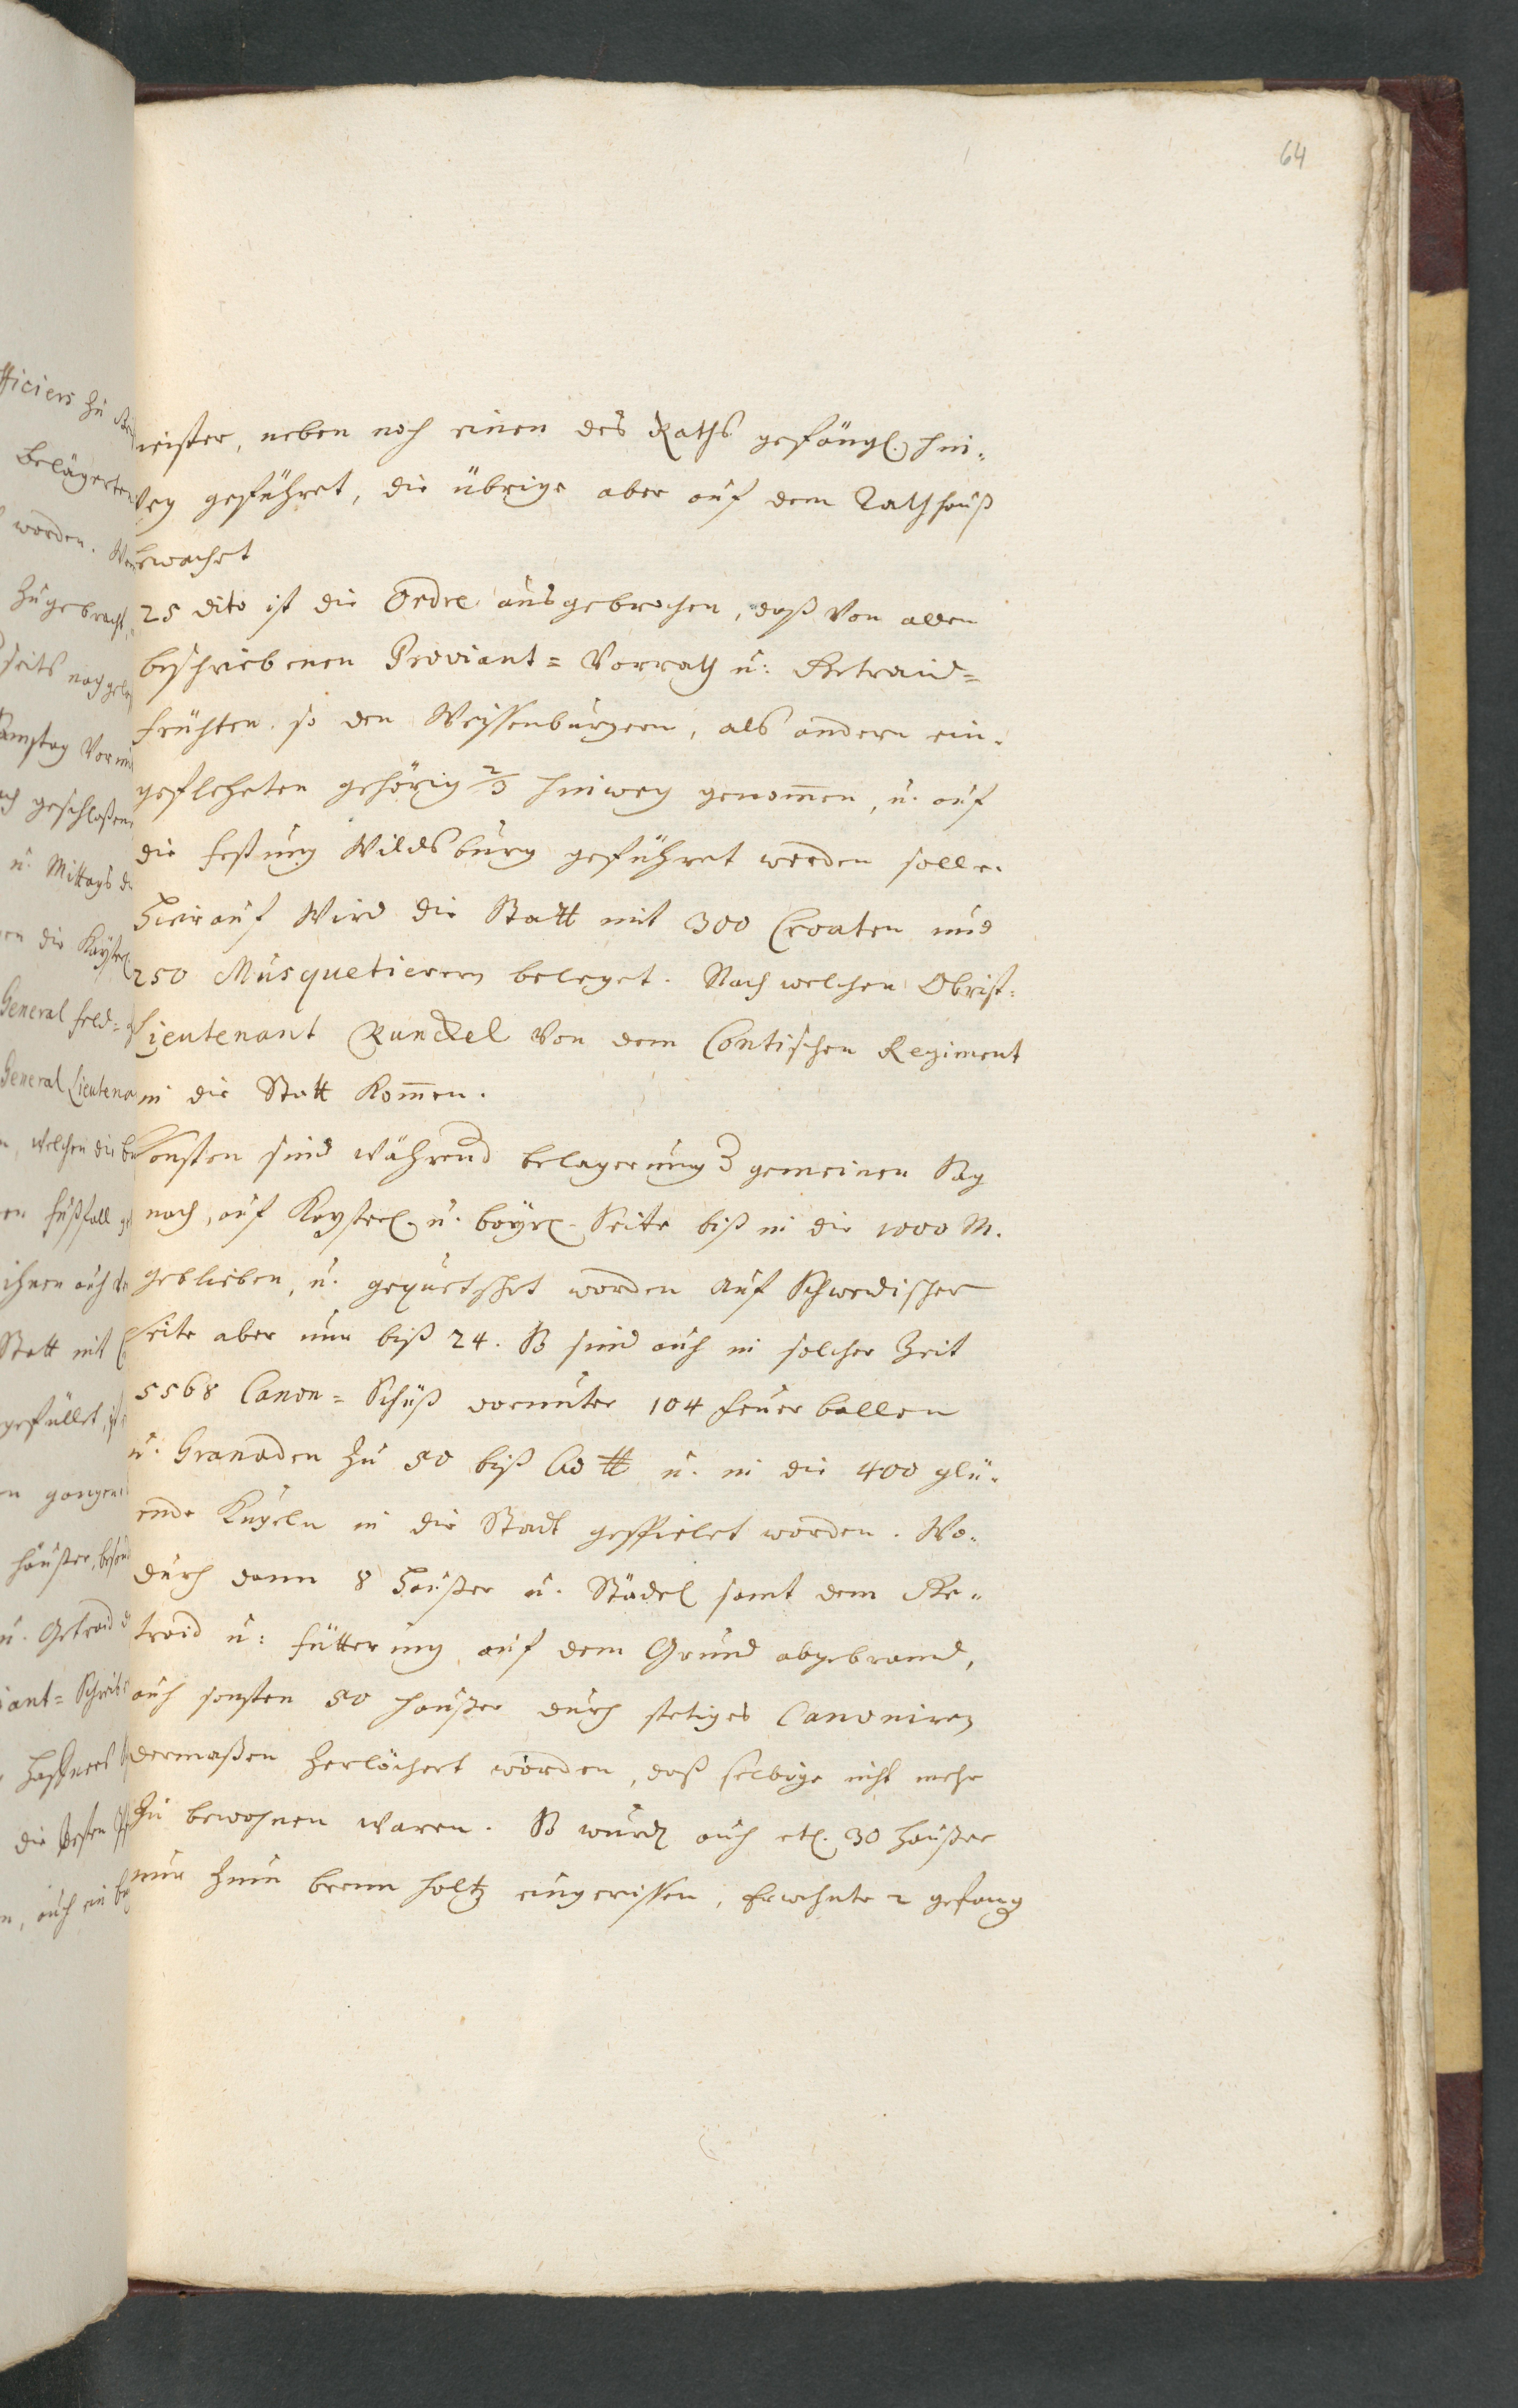 64
meister, neben noch einen des Raths gefängl. hin-
weg geführet, die übrige aber auf dem Rathhauß
bewachet
25 dito ist die Ordre ausgebrochen, daß von allen
beschriebenen Proviant= Vorrath u. Getraid=
früchten so den Weissenburgern, als andern ein-
geflehnten gehörig 2/3 hinweg genom̄en, u. auf
die Festung Wildsburg geführet werden solle.
Hierauf wird die Statt mit 300 Croaten und
250 Musquetierern beleget. Nach welchen Obrist-
Lieutenant Runckel von dem Contischen Regiment
in die Statt kom̄en.
Sonsten sind während belagerung gemeinen Sag
nach, auf Kayserl. u. bayr. Seite biß in die 1000 M.
geblieben, u. gequetschet worden auf Schwedischer
seite aber nur biß 24. So sind auch in solcher Zeit
5568 Canon= Schüß worunter 104 feuer ballen
u. Granaden zu 50 biß 60 ℔ u. in die 400 glü-
ende Kugeln in die Stadt gespielet worden. Wo-
durch dann 8 Häußer u. Städel samt dem Ge-
traid u. fütterung auf dem Grund abgebrand,
auch sonsten 50 häußer durch stetiges Canoniren
dermaßen zerlöchert worden, daß selbige nicht mehr
zu bewohnen waren. So wurden auch etl. 30 häußer
nur zum brenn holtz eingerissen, Erwehnte 2 gefang